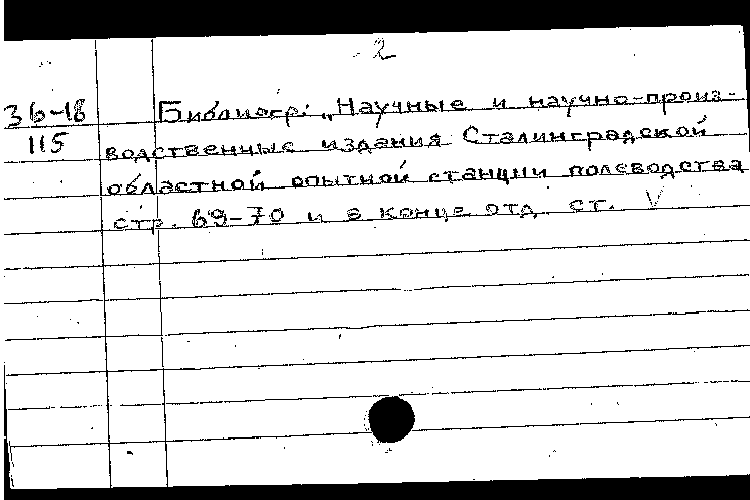 - 2
36-18
115
Библиогр: „Научные и научно-произ-
водственные издания Сталинградской
областной опытной станции полеводства
стр. 69-70 и в конце отд. ст. V